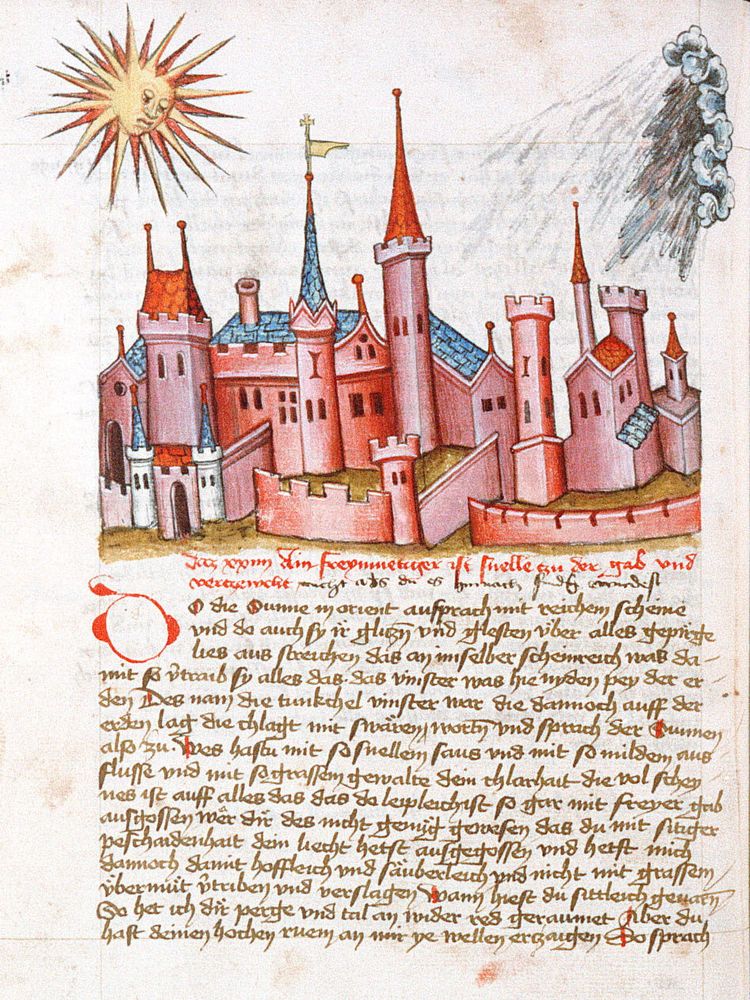 Daz xxiiii Ain freymuetiger ist snelle zu der gab und
vertzewcht nicht als du es hernach
Do die Sunne in orient aufprach mit reichem scheine
und do auch sy ir gliczn und glesten über alles gepirge
lies aus streichen das an im selber scheinreich was da-
mit so vtraib sy alles das das vinster was hie nyden pey der er-
den Des nam die tunkchel vinster war die dannoch auff der
erden lag die chlagt mit swären wortn und sprach der Sunnen
also zu Wes hastu mit so snellem saus und mit so mildem aus
flusse und mit so grassem gewalte dein chlarhait die vol schey-
nes ist auff alles das das do leipleich ist so gar mit freyer gab
ausgossen wer dir des nicht genüg gewesen das du mit sitiger
peschaidenhait dein liecht hetst ausgegossen und hetst mich
dannoch damit hoffleich und säuberleich und nicht mit grassem
übermüt vtriben und verslagen Wann hiest du sittleich gevarn
So het ich dir perge und tal an wider red geraumet Aber du
hast deinen hochen ruem an mir ye wellen ertzaigen So sprach